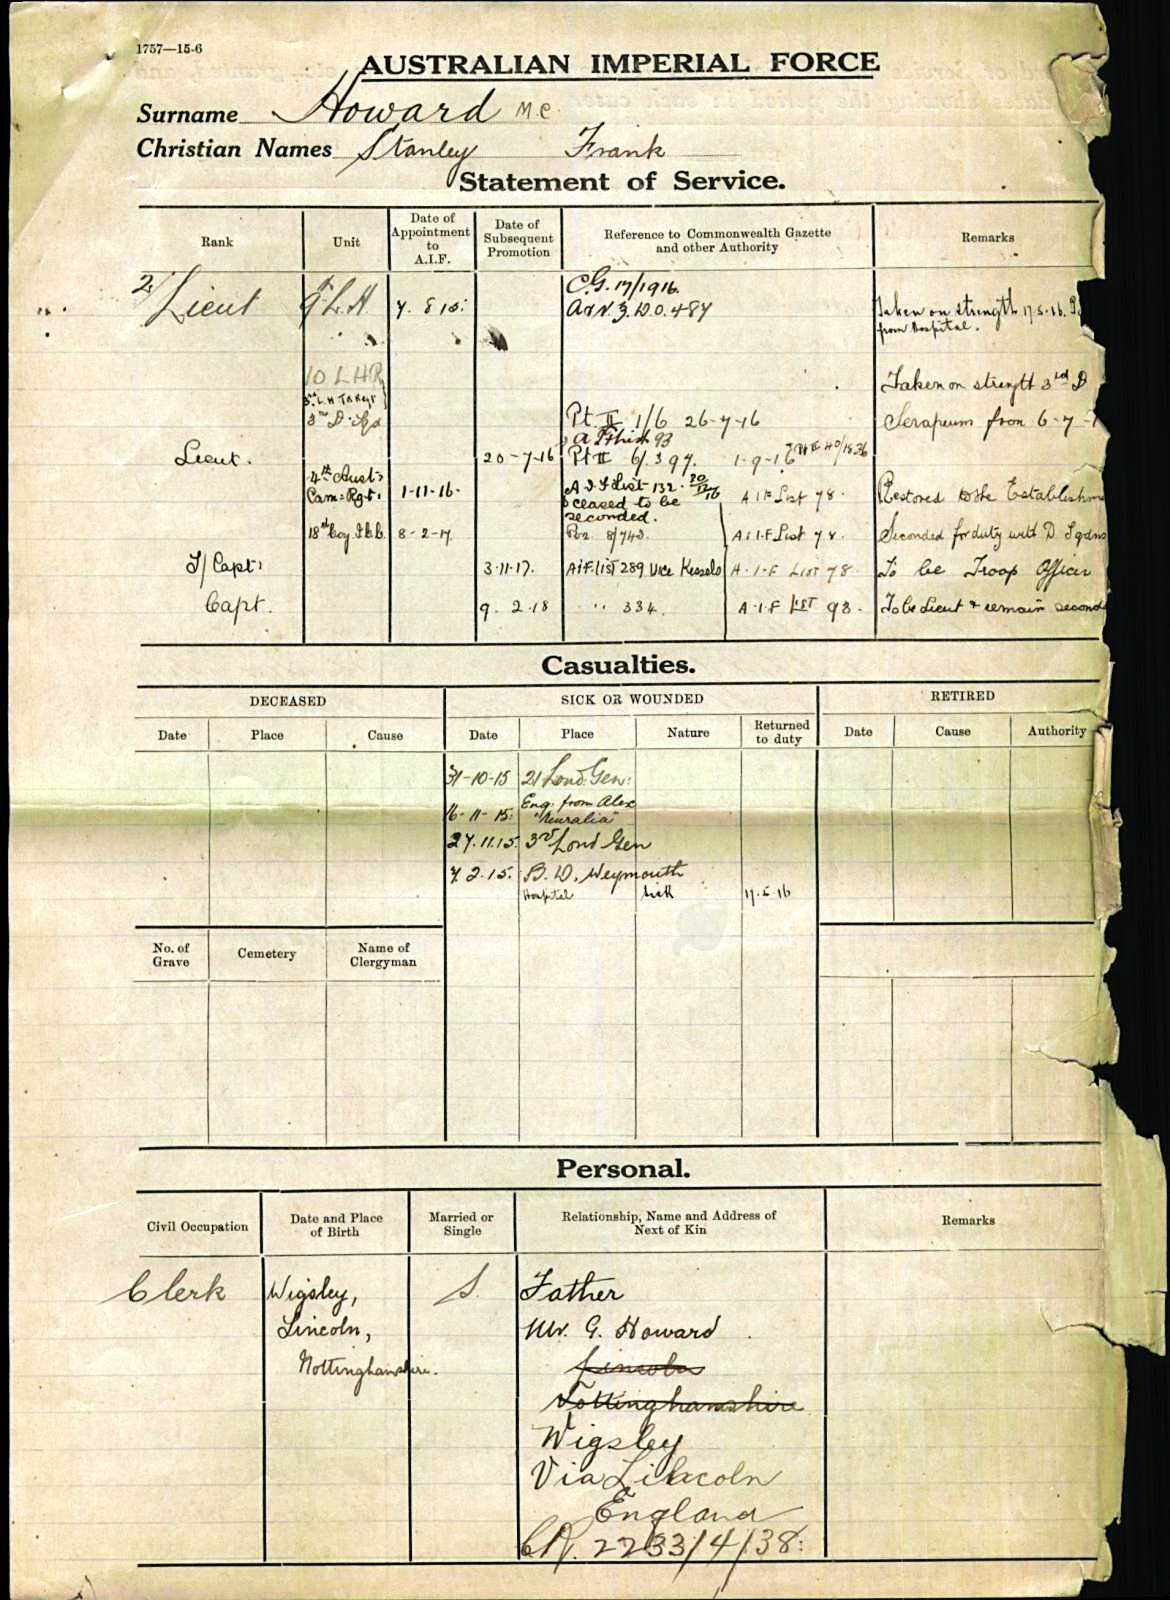 1757—15-6
AUSTRALIAN IMPERIAL FORCE
Surname Howard M.C.
Christian Names Stanley Frank
Statement of Service.
Rank
Unit
Date of Appointment to A.I.F.
Date of Subsequent Promotion
Reference to Commonwealth Gazette and other Authority
Remarks
2/Lieut 9 L.H 7. 8 15.
C.G. 17/1916.
487
Taken on strength 17-5-16.
from Hospital.
10 L H R
Taken on strength 3rd D
Pt. II 1/6 26-7-16
Serapeum from 6-7-
Lieut. 20-7-16 Pt II 6/397. 1-9-16
4th Aust:
Cam: Rgt. 1-11-16. A.I.F List 132. A I F List 78. Restored to the Establishm
ceased to be
seconded.
18th Coy I.C.C. 8-2-17 A.I.F List 78. Seconded for duty with D. Sqdns
T/Capt: 3-11-17. A.I.F. LIST 289 Vice A.I-F LIST 78. To be Troop Officer
Capt. 9. 2.18 " 334. A.I.F LIST 93. To be Lieut & remain second
Casualties.
DECEASED
SICK OR WOUNDED
RETIRED
Date
Place
Cause
Date
Place
Nature
Returned to duty
Date
Cause
Authority
31-10-15 21 Lond. Gen:
16-11-15: Eng. from Alex
"Neuralia"
27.11.15. 3rd Lond Gen
7.2.15. B.D. Weymouth
Hospital Sick 17.5.16
No. of Grave
Cemetery
Name of Clergyman
Personal.
Civil Occupation
Date and Place of Birth
Married or Single
Relationship, Name and Address of Next of Kin
Remarks
Clerk Wigsley, S. Father
Lincoln, Mr. G. Howard
Nottinghamshire. Lincoln
Nottinghamshire
Wigsley
Via Lincoln
England
2233/4/38: